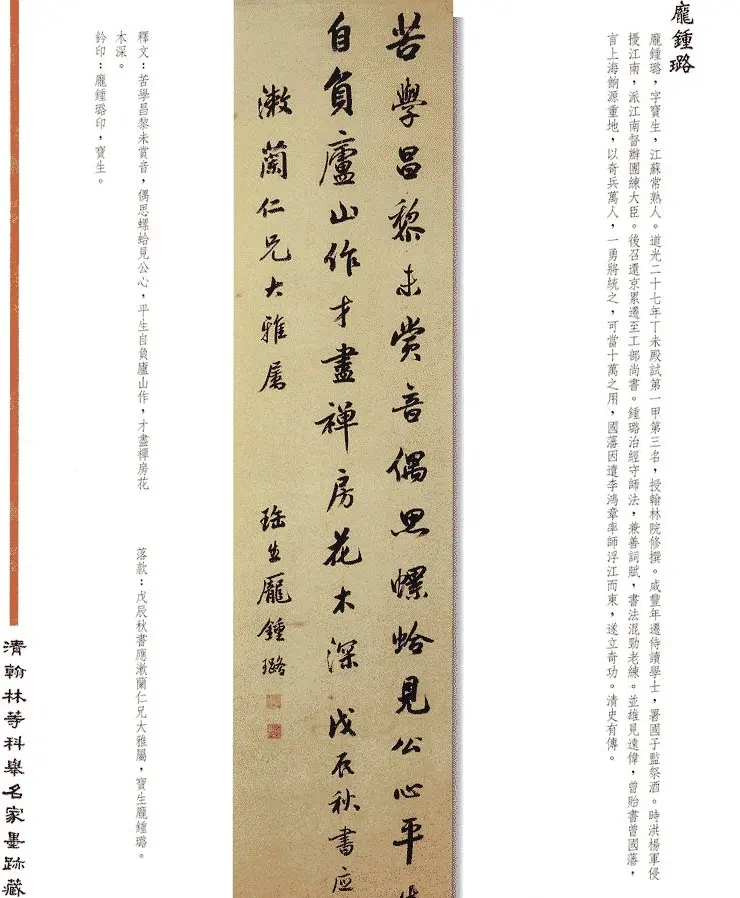 龐鍾璐
龐鍾璐,字寶生,江蘇常熟人。道光二十七年丁未殿試第一甲第三名,授翰林院修撰。咸豐年遷侍讀學士,署國子監祭酒。時洪楊軍侵
擾江南,派江南督辦團練大臣。後召還京累遷至工部尚書。鍾璐治經守師法,兼善詞賦,書法混勁老練。並雄見遠偉,曾貽書曾國藩,
言上海餉源重地,以奇兵萬人,一勇將統之,可當十萬之用,國藩因遣李鴻章率師浮江而東,遂立奇功。清史有傳。
苦學昌黎未賞音偶思螺蛤見公心平生
自負廬山作才盡禪房花木深 戊辰秋書應
漱蘭仁兄大雅屬 珤生龐鍾璐
釋文:苦學昌黎未賞音,偶思螺蛤見公心,平生自負廬山作,才盡禪房花
木深。
鈐印:龐鍾璐印,寶生。
落款:戊辰秋書應漱蘭仁兄大雅屬,寶生龐鍾璐。
清翰林等科舉名家墨跡藏